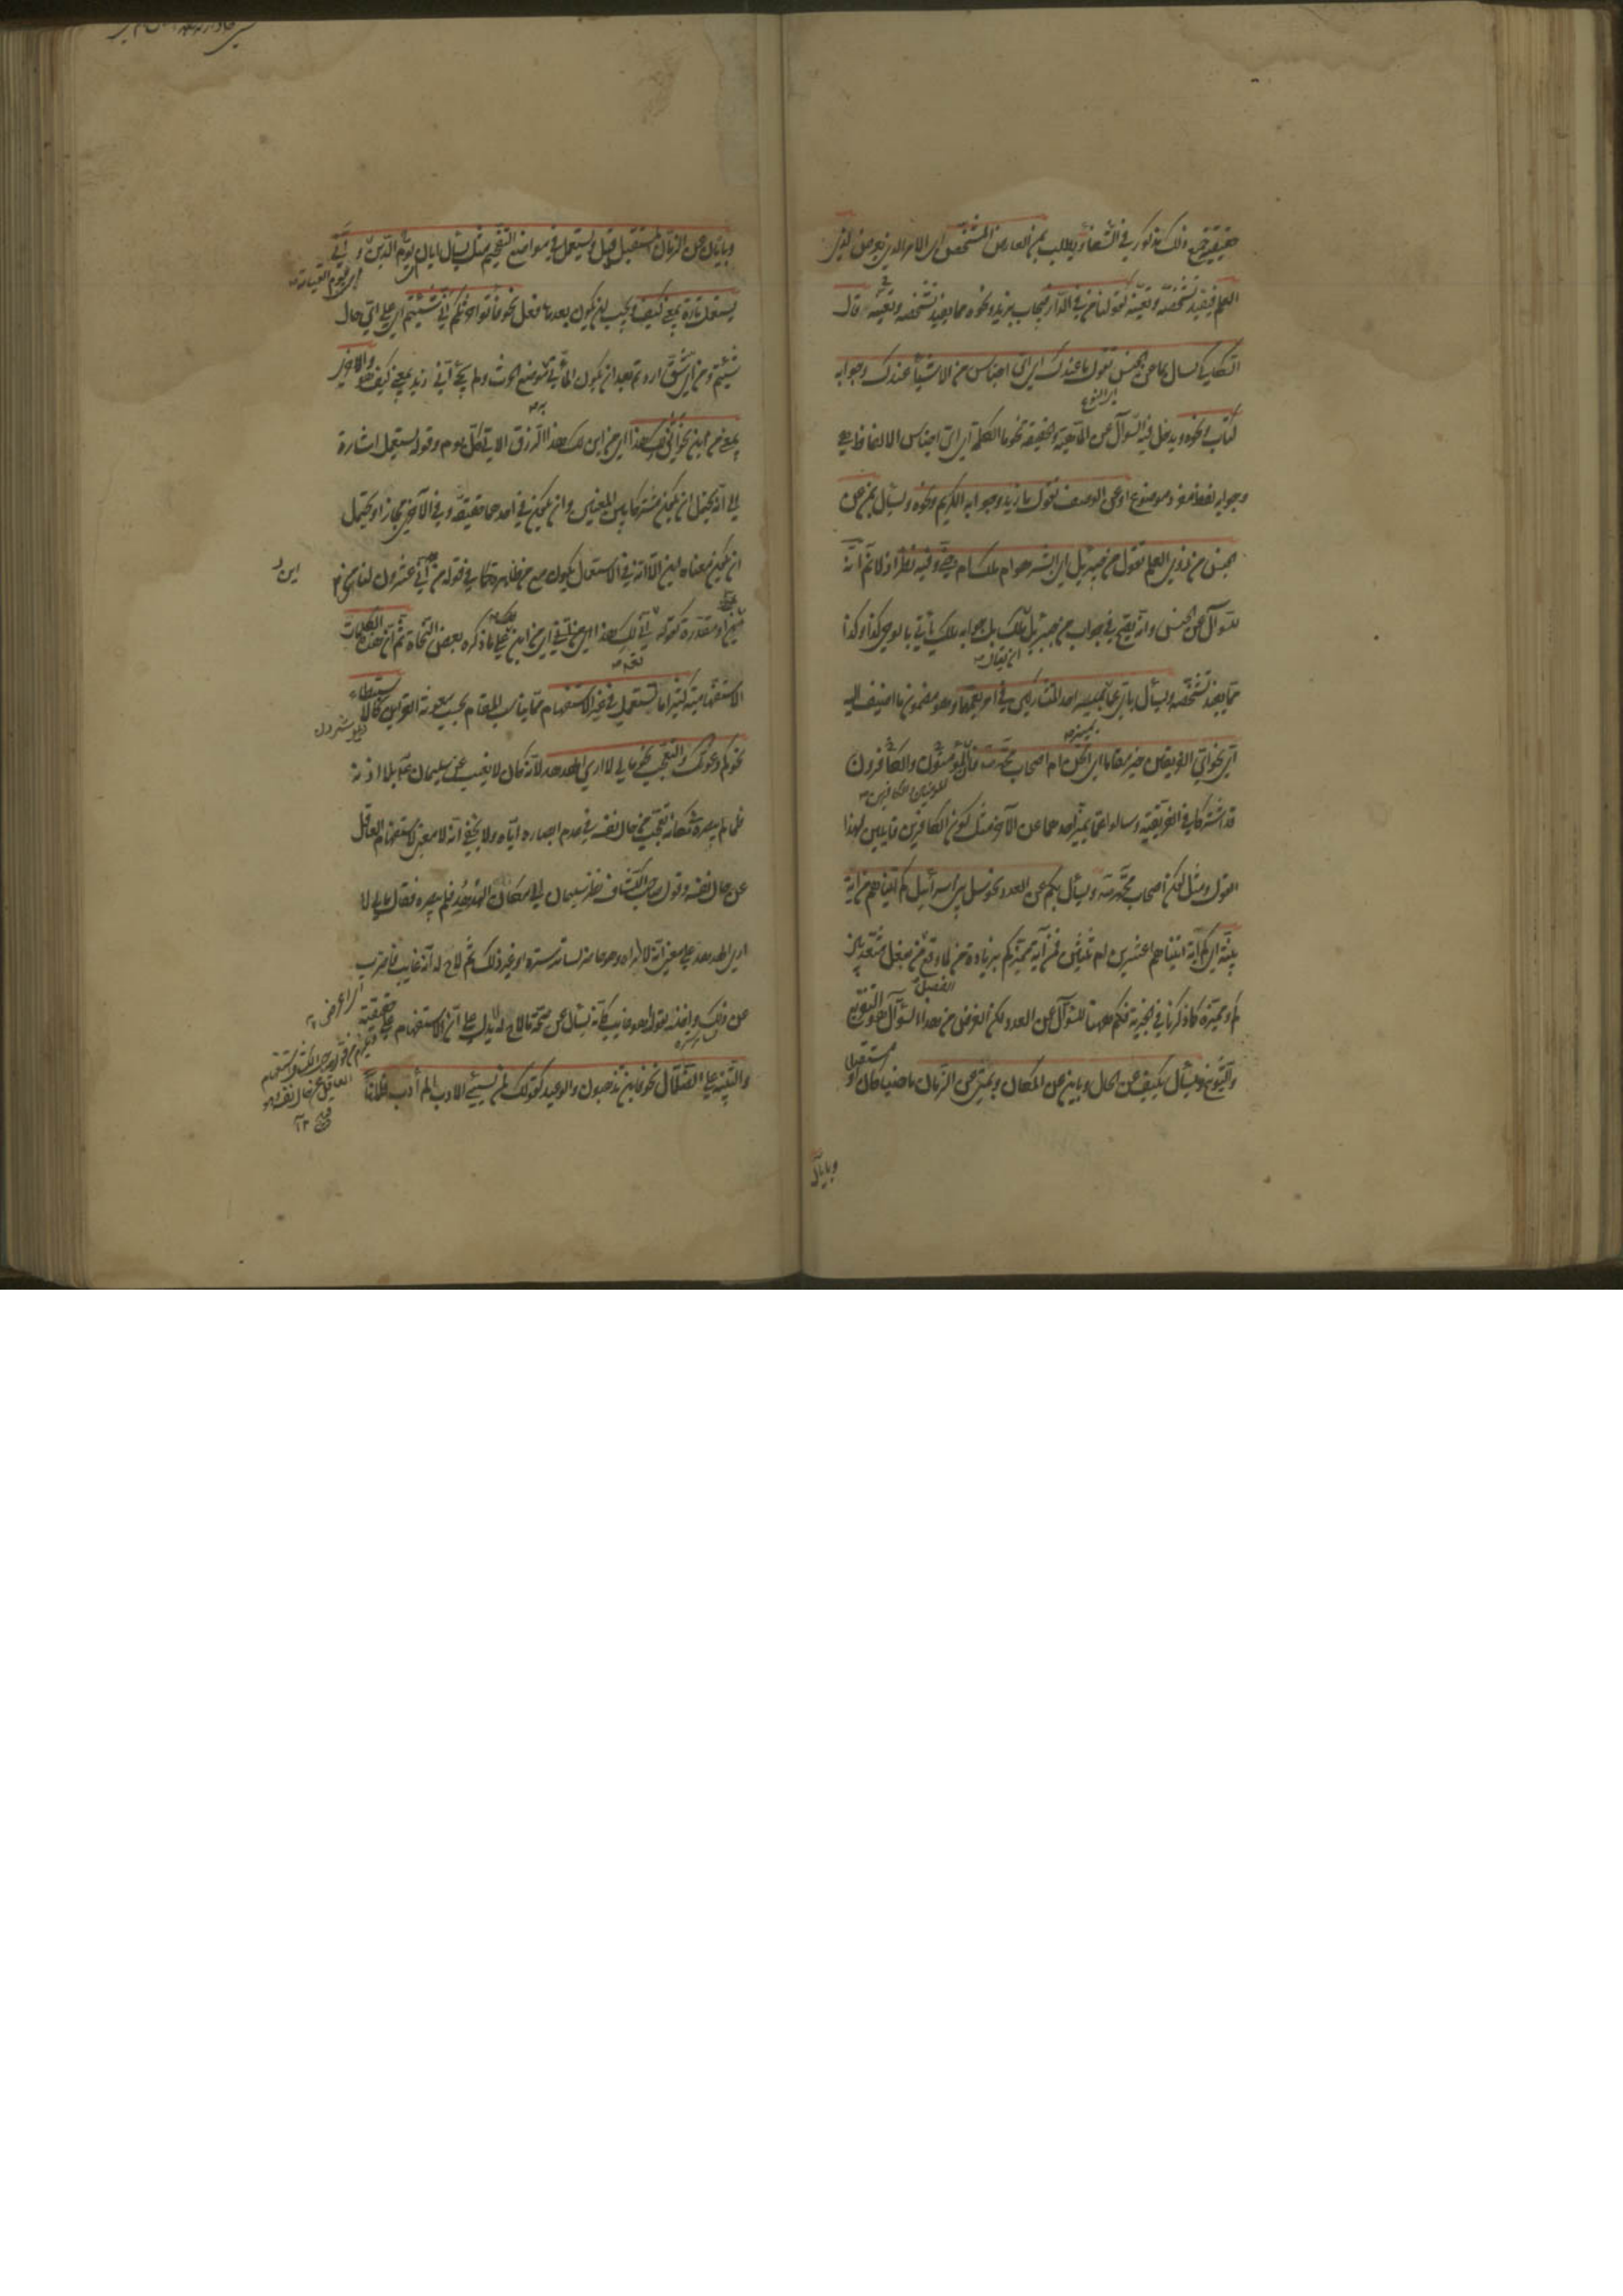 حقيقية وذلك مذكور في الشفاء ويطلب بمن العارض المشخص اي الامر الذي يعرض لذي
العلم فيفيد تشخصه وتعينه كقولنا من في الدار فيجاب بزيد ونحوه مما يفيد تشخصه وتعينه وقال
السكاكي يسأل بما عن الجنس تقول ما عندك اي اي اجناس من الاشياء عندك وجوابه
كتاب ونحوه ويدخل فيه السؤال عن الماهية والحقيقة نحو ما الكلمة اي اي اجناس الالفاظ هي
وجوابه لفظ مفرد موضوع او عن الوصف تقول ما زيد وجوابه الكريم ونحوه ويسأل بمن عن
الجنس من ذوي العلم تقول من جبريل اي ابشر هو ام ملك ام جني وفيه نظر اذ لا نم انه
للسؤال عن الجنس وانه يصح في جواب من جبريل ملك بل جوابه ملك يأتي بالوحي كذا وكذا
ان يقال
مما يفيد تشخصه ويسأل باي عما يميز احد المتشاركين في امر يعمهما وهو مضمون ما اضيف اليه
اي نحو اي الفريقين خير مقاما اي انحن ام اصحاب محمد فالمؤمنون والكافرون
قد اشتركا في الفريقية وسالوا عما يميز احدهما عن الآخر مثل كون الكافرين قايلين لهذا
القول ومثل كون اصحاب محمد ويسأل بكم عن العدد نحو سل بني اسرائيل كم آتيناهم من آية
بينة اي كم آية آتيناهم اعشرين ام ثلثين فمن آية مميز كم بزيادة من لما وقع من الفصل بفعل متعد بين
كم ومميزه كما ذكرنا في الخبرية فكم ههنا للسؤال عن العدد لكن الغرض من هذا السؤال هو التقريع
والتوبيخ ويسأل بكيف عن الحال وباين عن المكان وبمتى عن الزمان ماضيا كان او مستقبلا
وبايان
وبايان عن الزمان المستقبل قيل ويستعمل في مواضع التفخيم مثل يسأل ايان يوم الدين واني
يوم القيامة
يستعمل تارة بمعنى كيف ويجب ان يكون بعدها فعل نحو فأتوا حرثكم انى شئتم اي على اي حال
شئتم ومن اي شق اردتم بعد ان يكون المأتي موضع الحرث ولم يجئ انى زيد بمعنى كيف هو واخرى
بمعنى من اين نحو انى لك هذا اي من اين لك هذا الرزق الآتي كل يوم وقوله يستعمل اشارة
الى انه يحتمل ان يكون مشتركا بين المعنيين وان يكون في احدهما حقيقة وفي الآخر مجازا ويحتمل
ان يكون معناه اين الا انه في الاستعمال يكون مع من ظاهرة كما في قوله من انى عشرون لنا
اين
او مقدرة كقوله تعالى انى لك هذا اي من انى اي من اين على ما ذكره بعض النحاة ثم ان هذه الكلمات
الاستفهامية كثيرا ما تستعمل في غير الاستفهام مما يناسب المقام بحسب معونة القراين كالاستبطاء
نحو كم دعوتك والتعجب نحو ما لي لا ارى الهدهد لانه كان لا يغيب عن سليمان عم بلا اذنه
فلما لم يبصره مكانه تعجب من حال نفسه في عدم ابصاره اياه ولا يخفى انه لا معنى لاستفهام العاقل
عن حال نفسه وقول صاحب الكشاف نظر سليمان الى مكان الهدهد فلم يبصره فقال ما لي لا
ارى الهدهد على معنى انه لا يراه وهو حاضر لساتر ستره او غير ذلك ثم لاح له انه غايب فاضرب
عن ذلك واخذ يقول اهو غايب كأنه يسأل عن صحة ما لاح له يدل على ان الاستفهام على حقيقته
والتنبيه على الضلال نحو فاين تذهبون والوعيد كقولك لمن يسيء الادب الم أدب فلانا